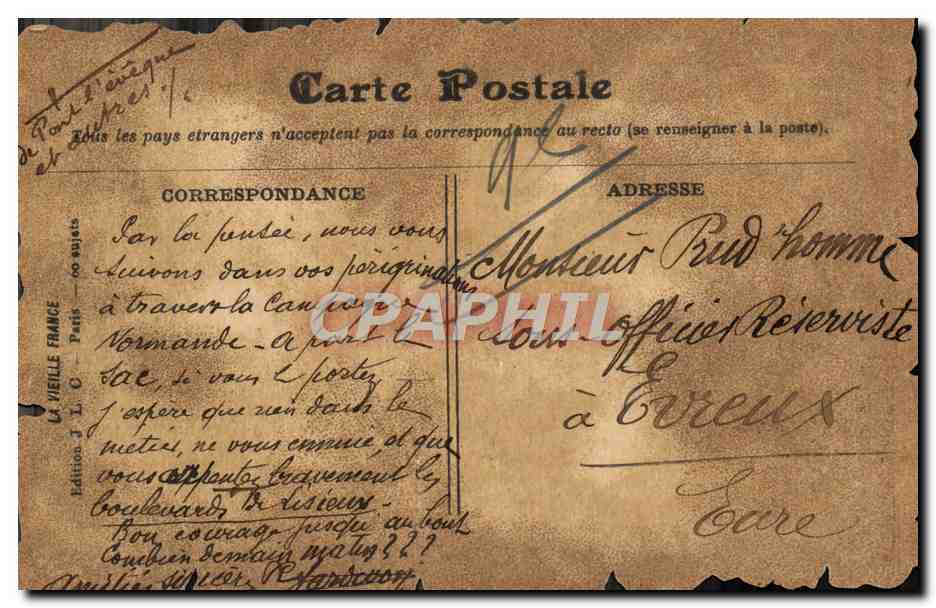 de Pont l'évêque
et autres
Carte Postale
Tous les pays etrangers n'acceptent pas la correspondance au recto (se renseigner à la poste).
CORRESPONDANCE
Par la pensée, nous vous
suivons dans vos périgrinations
à travers la campagne
Normande - a part le
sac, si vous l portez
j'espere que rien dans le
metier, ne vous ennuie, et que
vous arpentez bravement les
boulevards de Lisieux -
Bon courage jusqu'au bout
Combien demain matin ???
Amitiés sincères
ADRESSE
Monsieur Prud'homme
Sous-officier Réserviste
à Evreux
Eure
LA VIEILLE FRANCE
Edition J L C - Paris - 00 sujets
CPAPHIL